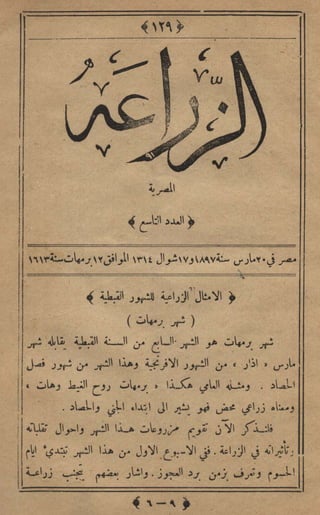 ﴿١٢٩﴾
الزراعة
المصرية
﴿ العدد التاسع ﴾
مصر في ٢٠ مارس سنة ١٨٩٧ و ١٧ شوال ١٣١٤ الموافق ١٢ برمهات سنة ١٦١٣
﴿ الامثال الزراعية للشهور القبطية ﴾
( شهر برمهات )
شهر برمهات هو الشهر السابع من السنة القبطية يقابله شهر
مارس « اذار » من الشهور الافرنجية وهذا الشهر من شهور فصل
الحصاد . ومثله العامي هكذا « برمهات روح الغيط وهات »
ومعناه زراعي محض فهو يشير الى ابتداء الجني والحصاد .
فلنذكر الآن تقويم مزروعات هذا الشهر واحوال تقلباته
وتأثيراته في الزراعة . ففي الاسبوع الاول من هذا الشهر تبتدئ ايام
الحسوم وتعرف بزمن برد العجوز . واشار بعضهم بتجنب زراعة
﴿ ٩ — ٦ ﴾